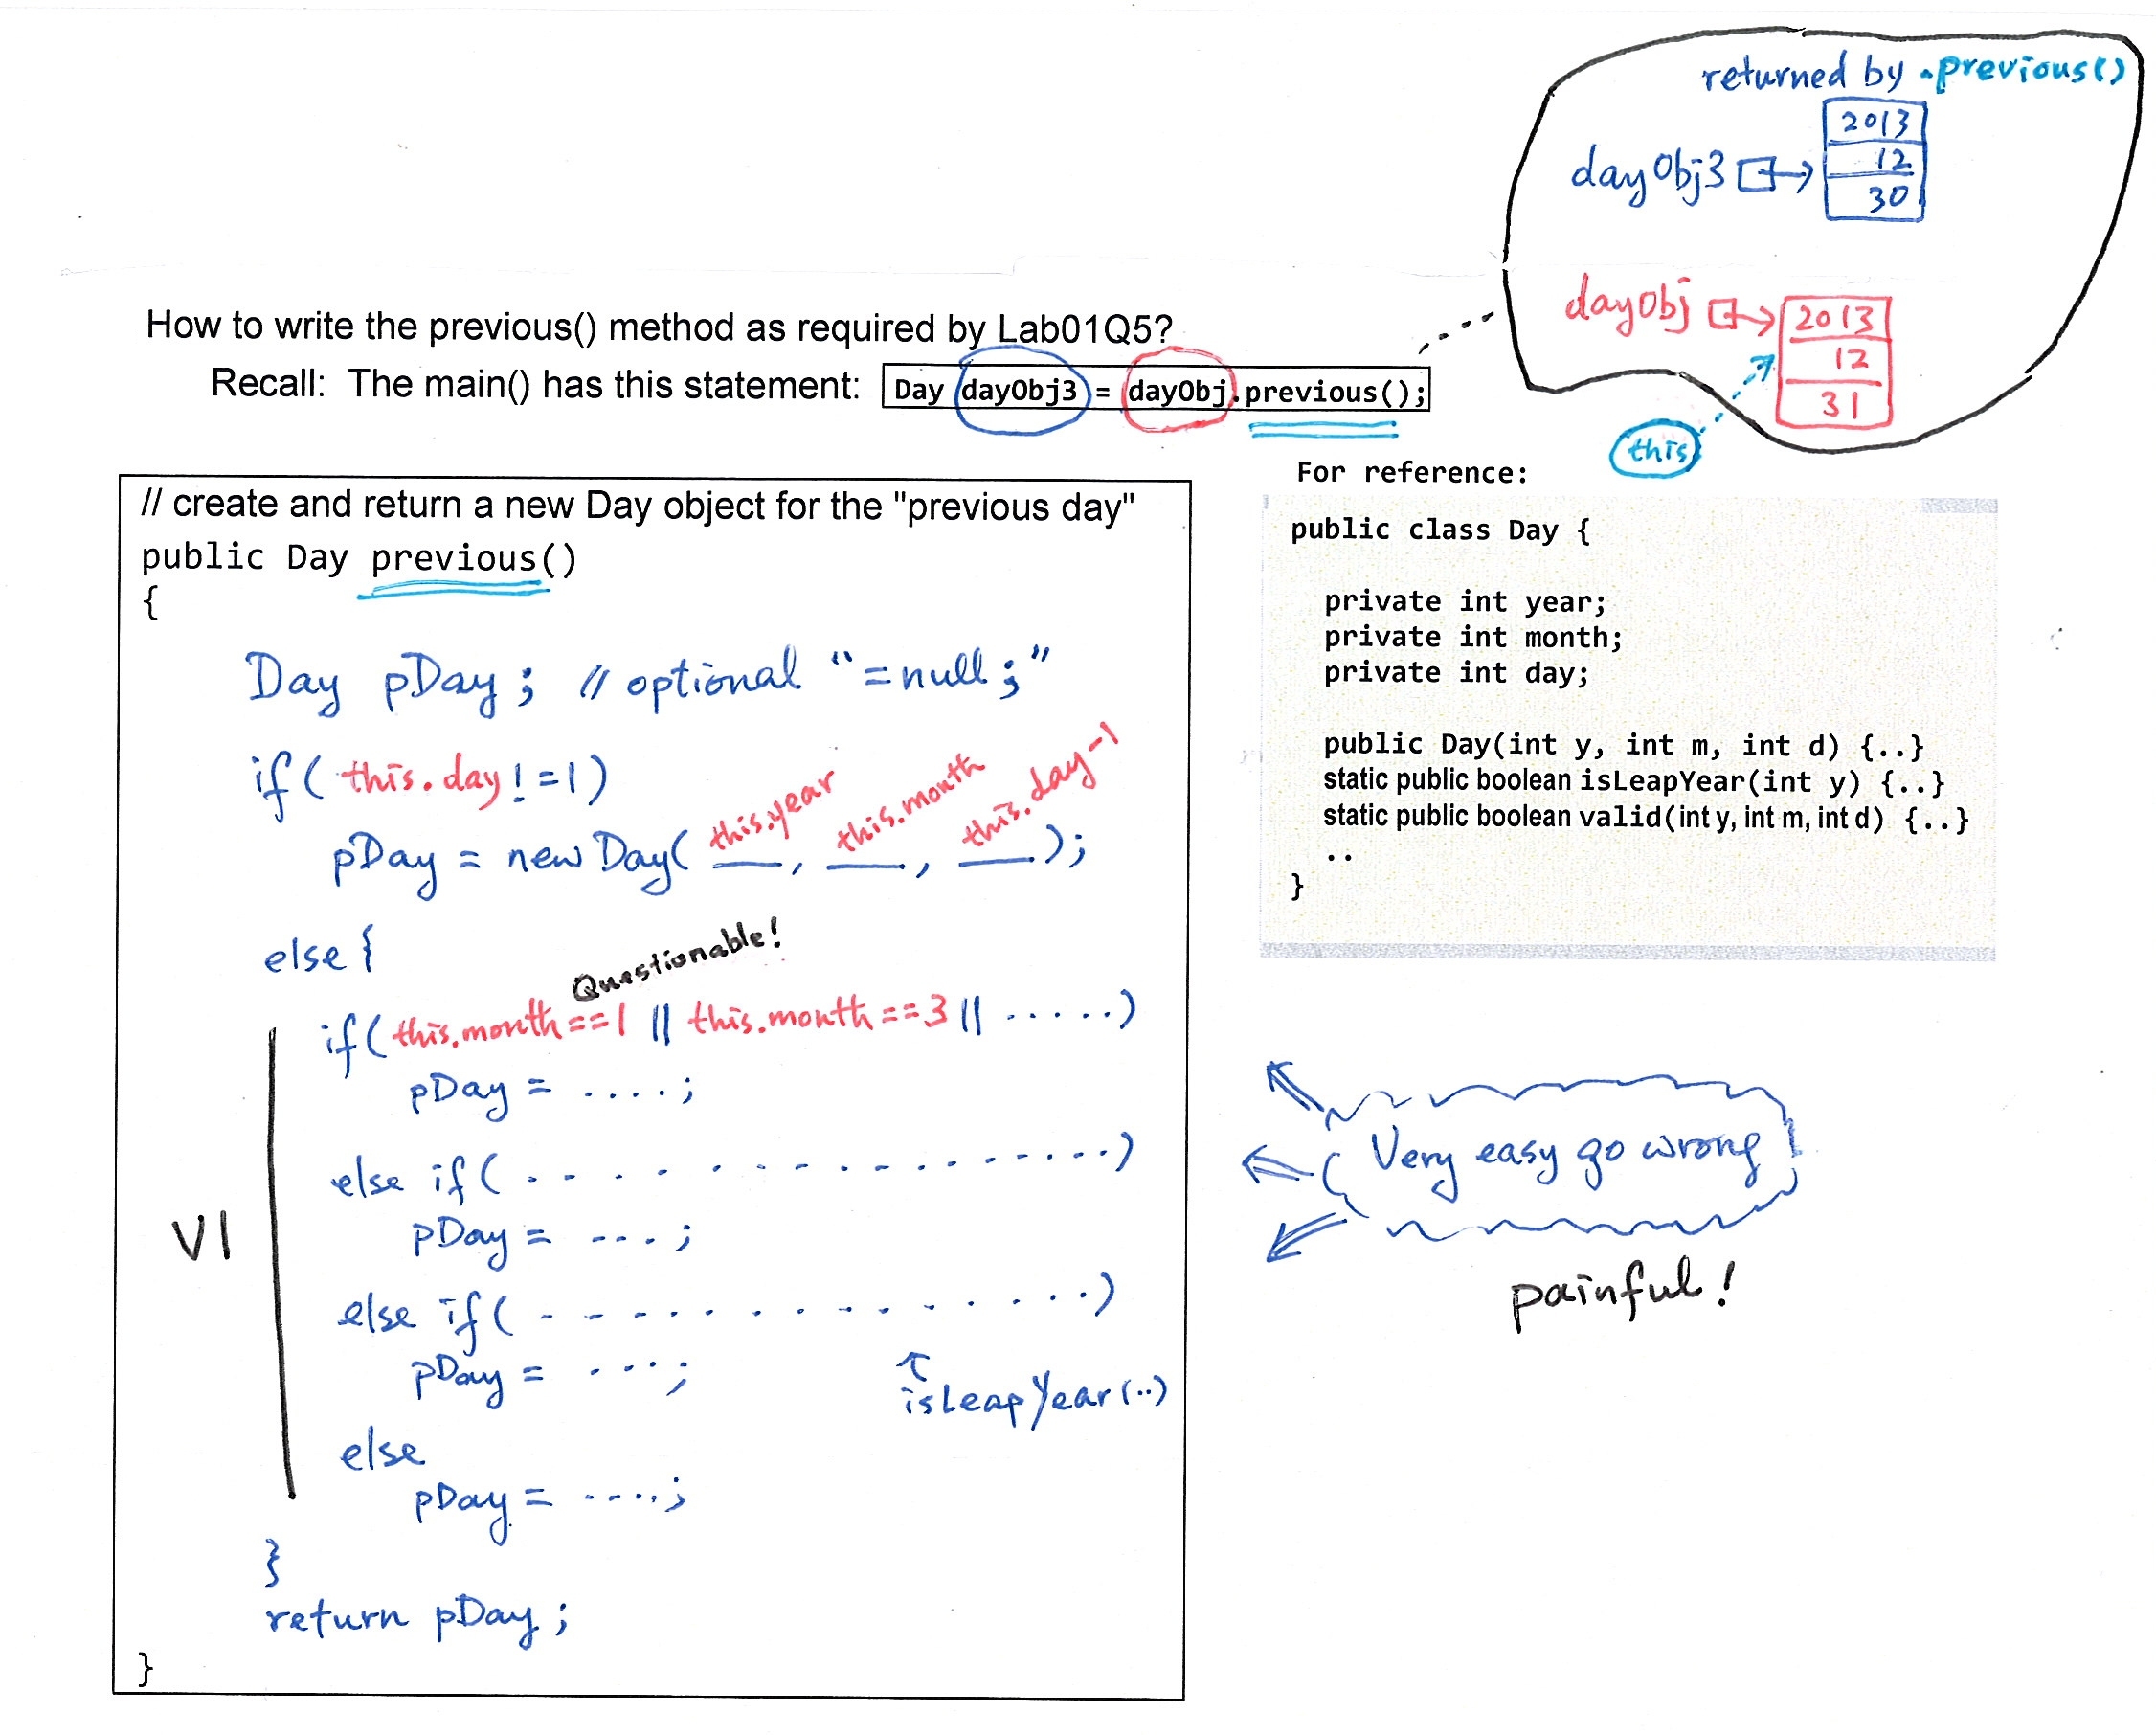 returned by .previous()
2013
dayObj3 12
30
dayObj 2013
12
31
this
How to write the previous() method as required by Lab01Q5?
Recall: The main() has this statement: Day dayObj3 = dayObj.previous();
// create and return a new Day object for the "previous day"
public Day previous()
{
Day pDay; // optional "=null;"
if( this.day!=1)
this.year this.month this.day-1
pDay = new Day( __, __, __);
else {
Questionable!
if(this.month==1 || this.month==3 || .....)
pDay = ....;
else if( . . . . . . . . . . . . . . .)
pDay = ....;
else if( . . . . . . . . . . . . . . .)
pDay = ....;
isLeapYear(..)
else
pDay = ....;
}
return pDay;
}
V1
For reference:
public class Day {
private int year;
private int month;
private int day;
public Day(int y, int m, int d) {..}
static public boolean isLeapYear(int y) {..}
static public boolean valid(int y, int m, int d) {..}
..
}
Very easy go wrong
painful!